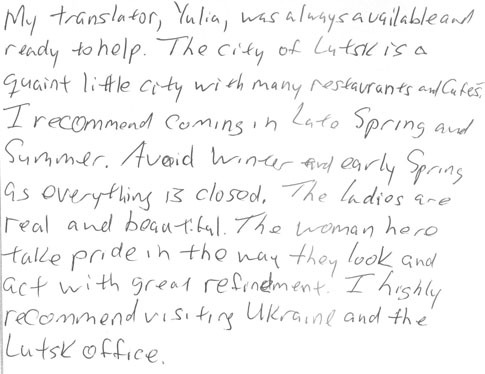 My translator, Yulia, was always available and
ready to help. The city of Lutsk is a
quaint little city with many restaurants and Cafes.
I recommend coming in Late Spring and
Summer. Avoid Winter and early Spring
as everything is closed. The ladies are
real and beautiful. The woman here
take pride in the way they look and
act with great refindment. I highly
recommend visiting Ukraine and the
Lutsk office.